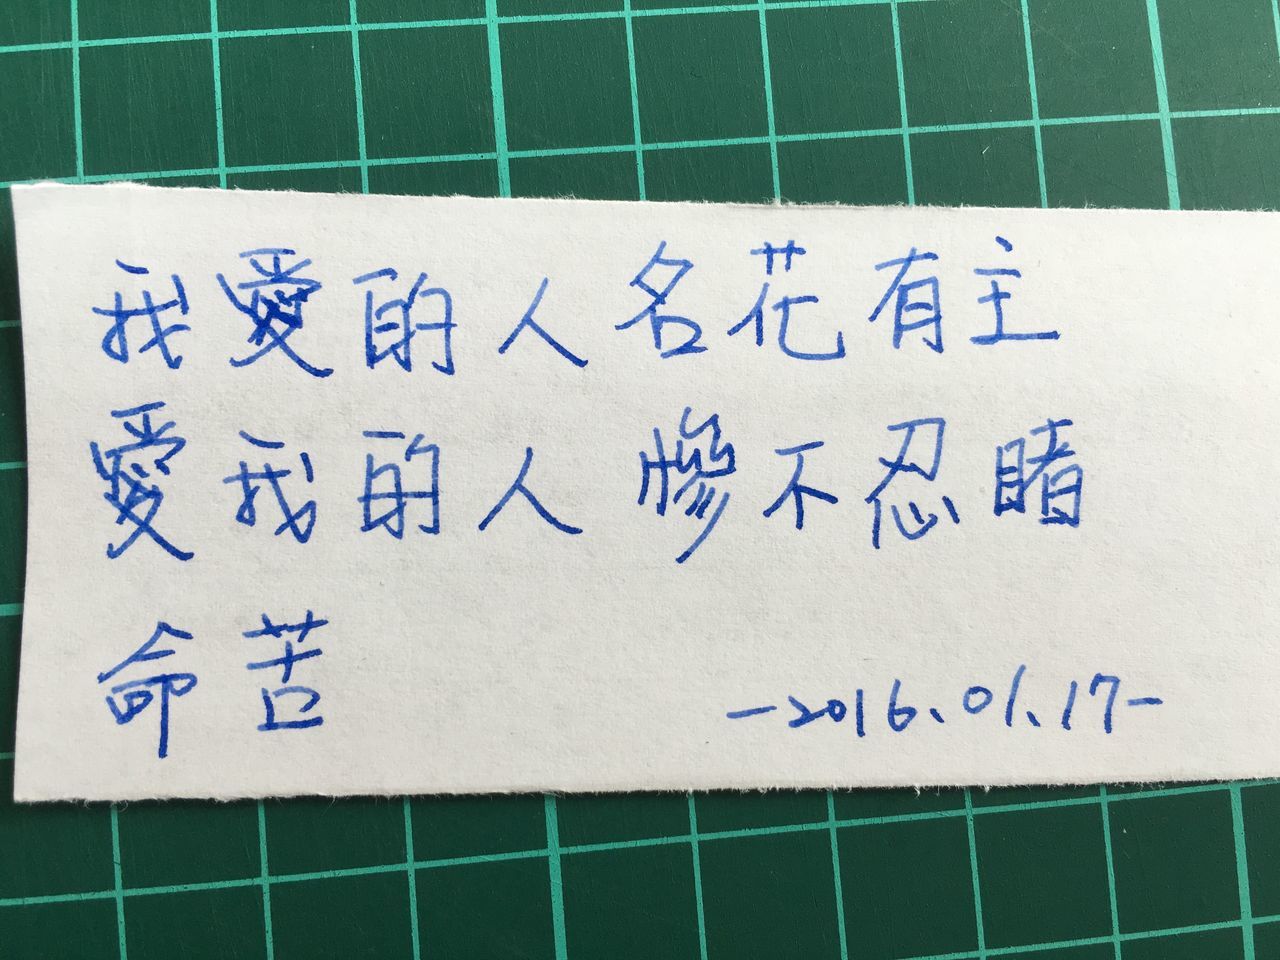 我愛的人名花有主
愛我的人 慘不忍睹
命苦
-2016.01.17-